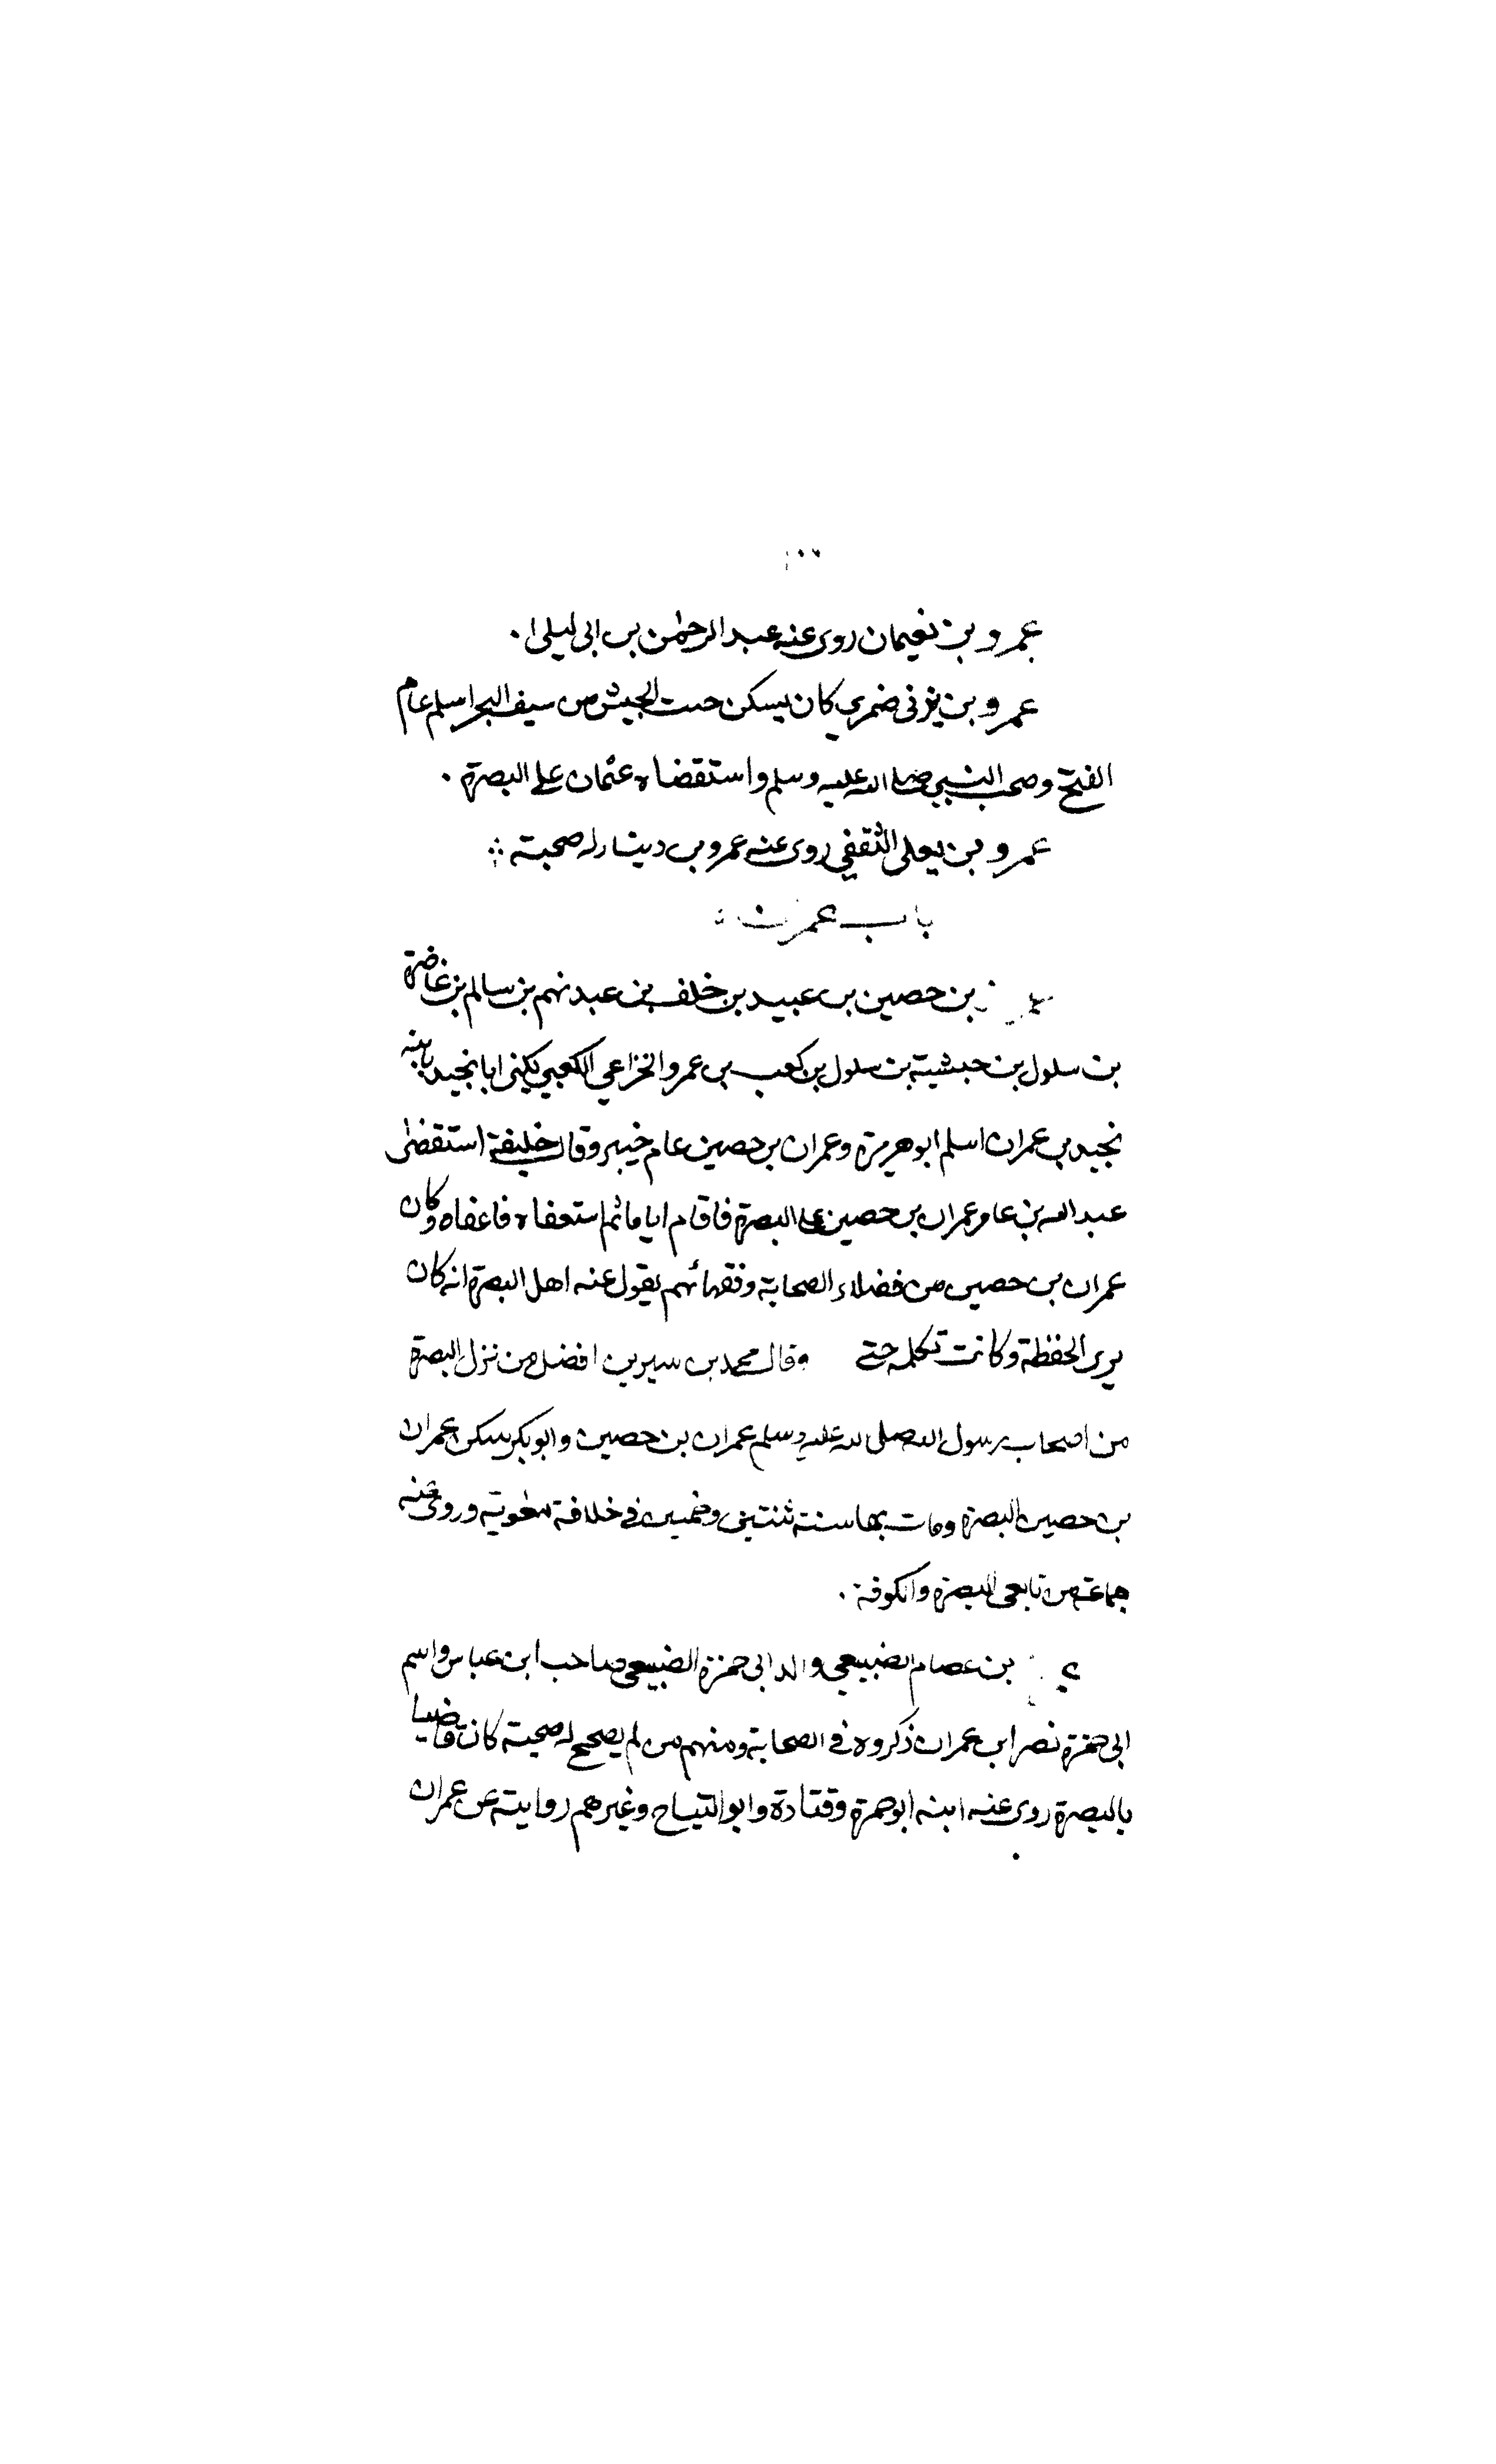 عمرو بن نعيمان روى عنه عبد الرحمٰن بن ابى ليلى ا .
عمرو بن يثربى ضمري كان يسكن خبت الجيش من سيف البحر اسلم عام
الفتح وصحب النبي صلى الله عليه وسلم واستقضاه عثمان على البصرة .
عمرو بن يعلى الثقفي روى عنه عمرو بن دينار له صحبة ∴
باب عمرن
بن حصين بن عبيد بن خلف بن عبد نهم بن سالم بن غاضرة
بن سلول بن حبشية بن سلول بن كعب بن عمرو الخزاعي الكعبي يكنى ابا نجيد بابنه
نجيد بن عمران اسلم ابو هريرة وعمران بن حصين عام خيبر وقال خليفة استقضى
عبد الله بن عامر عمران بن حصين على البصرة فاقام اياما ثم استعفاه فاعفاه وكان
عمران بن حصين من فضلاء الصحابة وفقهائهم يقول عنه اهل البصرة انه كان
يرى الحفظة وكانت تكلمه حتى وقال محمد بن سيرين افضل من نزل البصرة
من اصحاب رسول الله صلى الله عليه وسلم عمران بن حصين وابو بكر سكن عمران
بن حصين البصرة ومات بها سنة ثنتين وخمسين في خلافة معٰوية وروى عنه
جماعة من تابعى البصرة والكوفة .
بن عصام الضبيعي والد ابى حمزة الضبيعي صاحب ابن عباس واسم
ابى حمزة نصر ابن عمران ذكروه في الصحابة ومنهم من لم يصحح له صحبة كان قاضيا
بالبصرة روى عنه ابنه ابو حمزة وقتادة وابو التياح وغيرهم روايته عن عمران